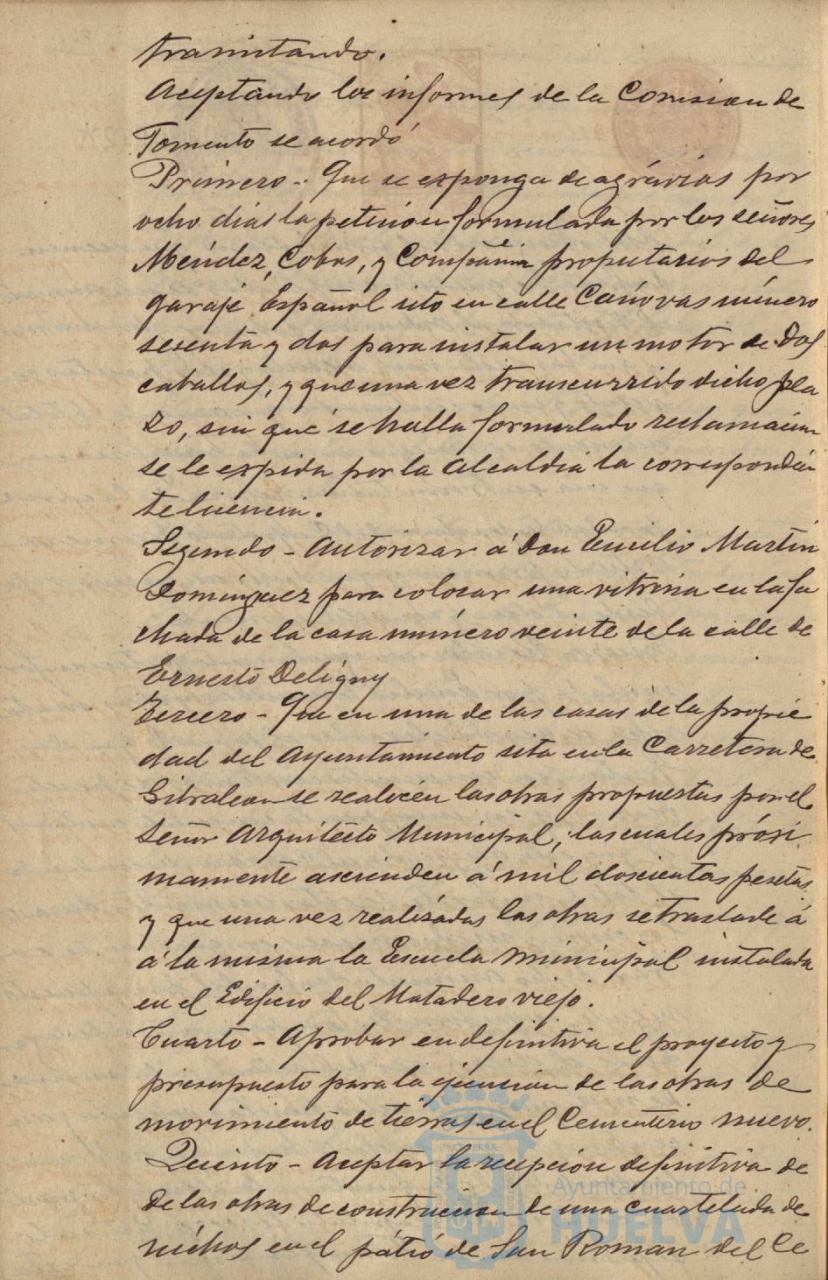 tramitando.
Aceptando los informes de la Comision de
Fomento se acordó
Primero - Que se esponga de agrávios por
ocho dias la peticion formulada por los señores
Méndez, Cobos, y Compañia propietarios del
garaje Español sito en calle Cánovas número
sesenta y dos para instalar un motor de Dos
caballos, y que una vez transcurrido dicho pla
zo, sin que se halla formulado reclamacion
se le espida por la Alcaldia la correspondien
te licencia.
Segundo - Autorizar á Don Emilio Martin
Dominguez para colocar una vitrina en la fa
chada de la casa número veinte de la calle de
Ernesto Deligny
Tercero - Que en una de las casas de la propie
dad del Ayuntamiento sita en la Carretera de
Gibraleon se realicen las obras propuestas por el
Señor Arquitecto Municipal, las cuales prósi
mamente ascienden á mil doscientas pesetas
y que una vez realizadas las obras se traslade á
á la misma la Escuela municipal instalada
en el Edificio del Matadero viejo.
Cuarto - Aprobar en definitiva el proyecto y
presupuesto para la ejecucion de las obras de
movimiento de tierras en el Cementerio nuevo.
Quinto - Aceptar la recepcion definitiva de
de las obras de construccion de una cuartelada de
nichos en el pátio de San Roman del Ce
Ayuntamiento de
HUELVA